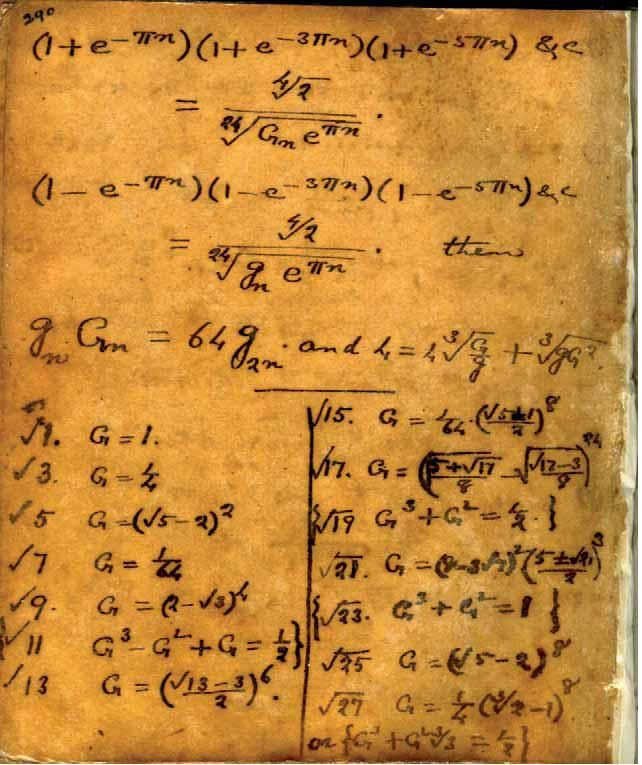 290
(1+e^{-πn})(1+e^{-3πn})(1+e^{-5πn}) &c
= ∜2 / ²⁴√(G_n e^{πn}) .
(1-e^{-πn})(1-e^{-3πn})(1-e^{-5πn}) &c
= ∜2 / ²⁴√(g_n e^{πn}) . then
g_n G_n = 64 g_{2n} . and
√1. G = 1.
√3. G = 1/4
√5 G = (√5-2)^2
√7 G = 1/64
√9. G = (2-√3)^4
{√11 G^3 - G^2 + G = 1/2}
√13 G = ((√13-3)/2)^6.
√15. G = 1/64 . ((√5±1)/2)^8
√17. G = (√((5+√17)/8) - √((√17-3)/8))^24
{√19 G^3 + G^2 = 1/2 . }
√21. G = (8-3√7)^2 ((5±√21)/2)^3
{√23. G^3 + G^2 = 1 }
√25 G = (√5-2)^8
√27 G = 1/4 (∛2-1)^8
or {G^3 + G^2 ∛3 = 1/2}